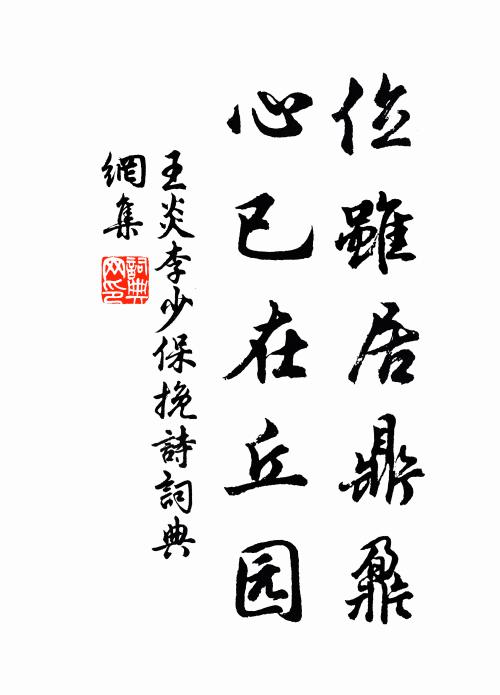 位雖居鼎鼐
心已在丘园
王炎李少保挽詩詞典
網集
詞典网印